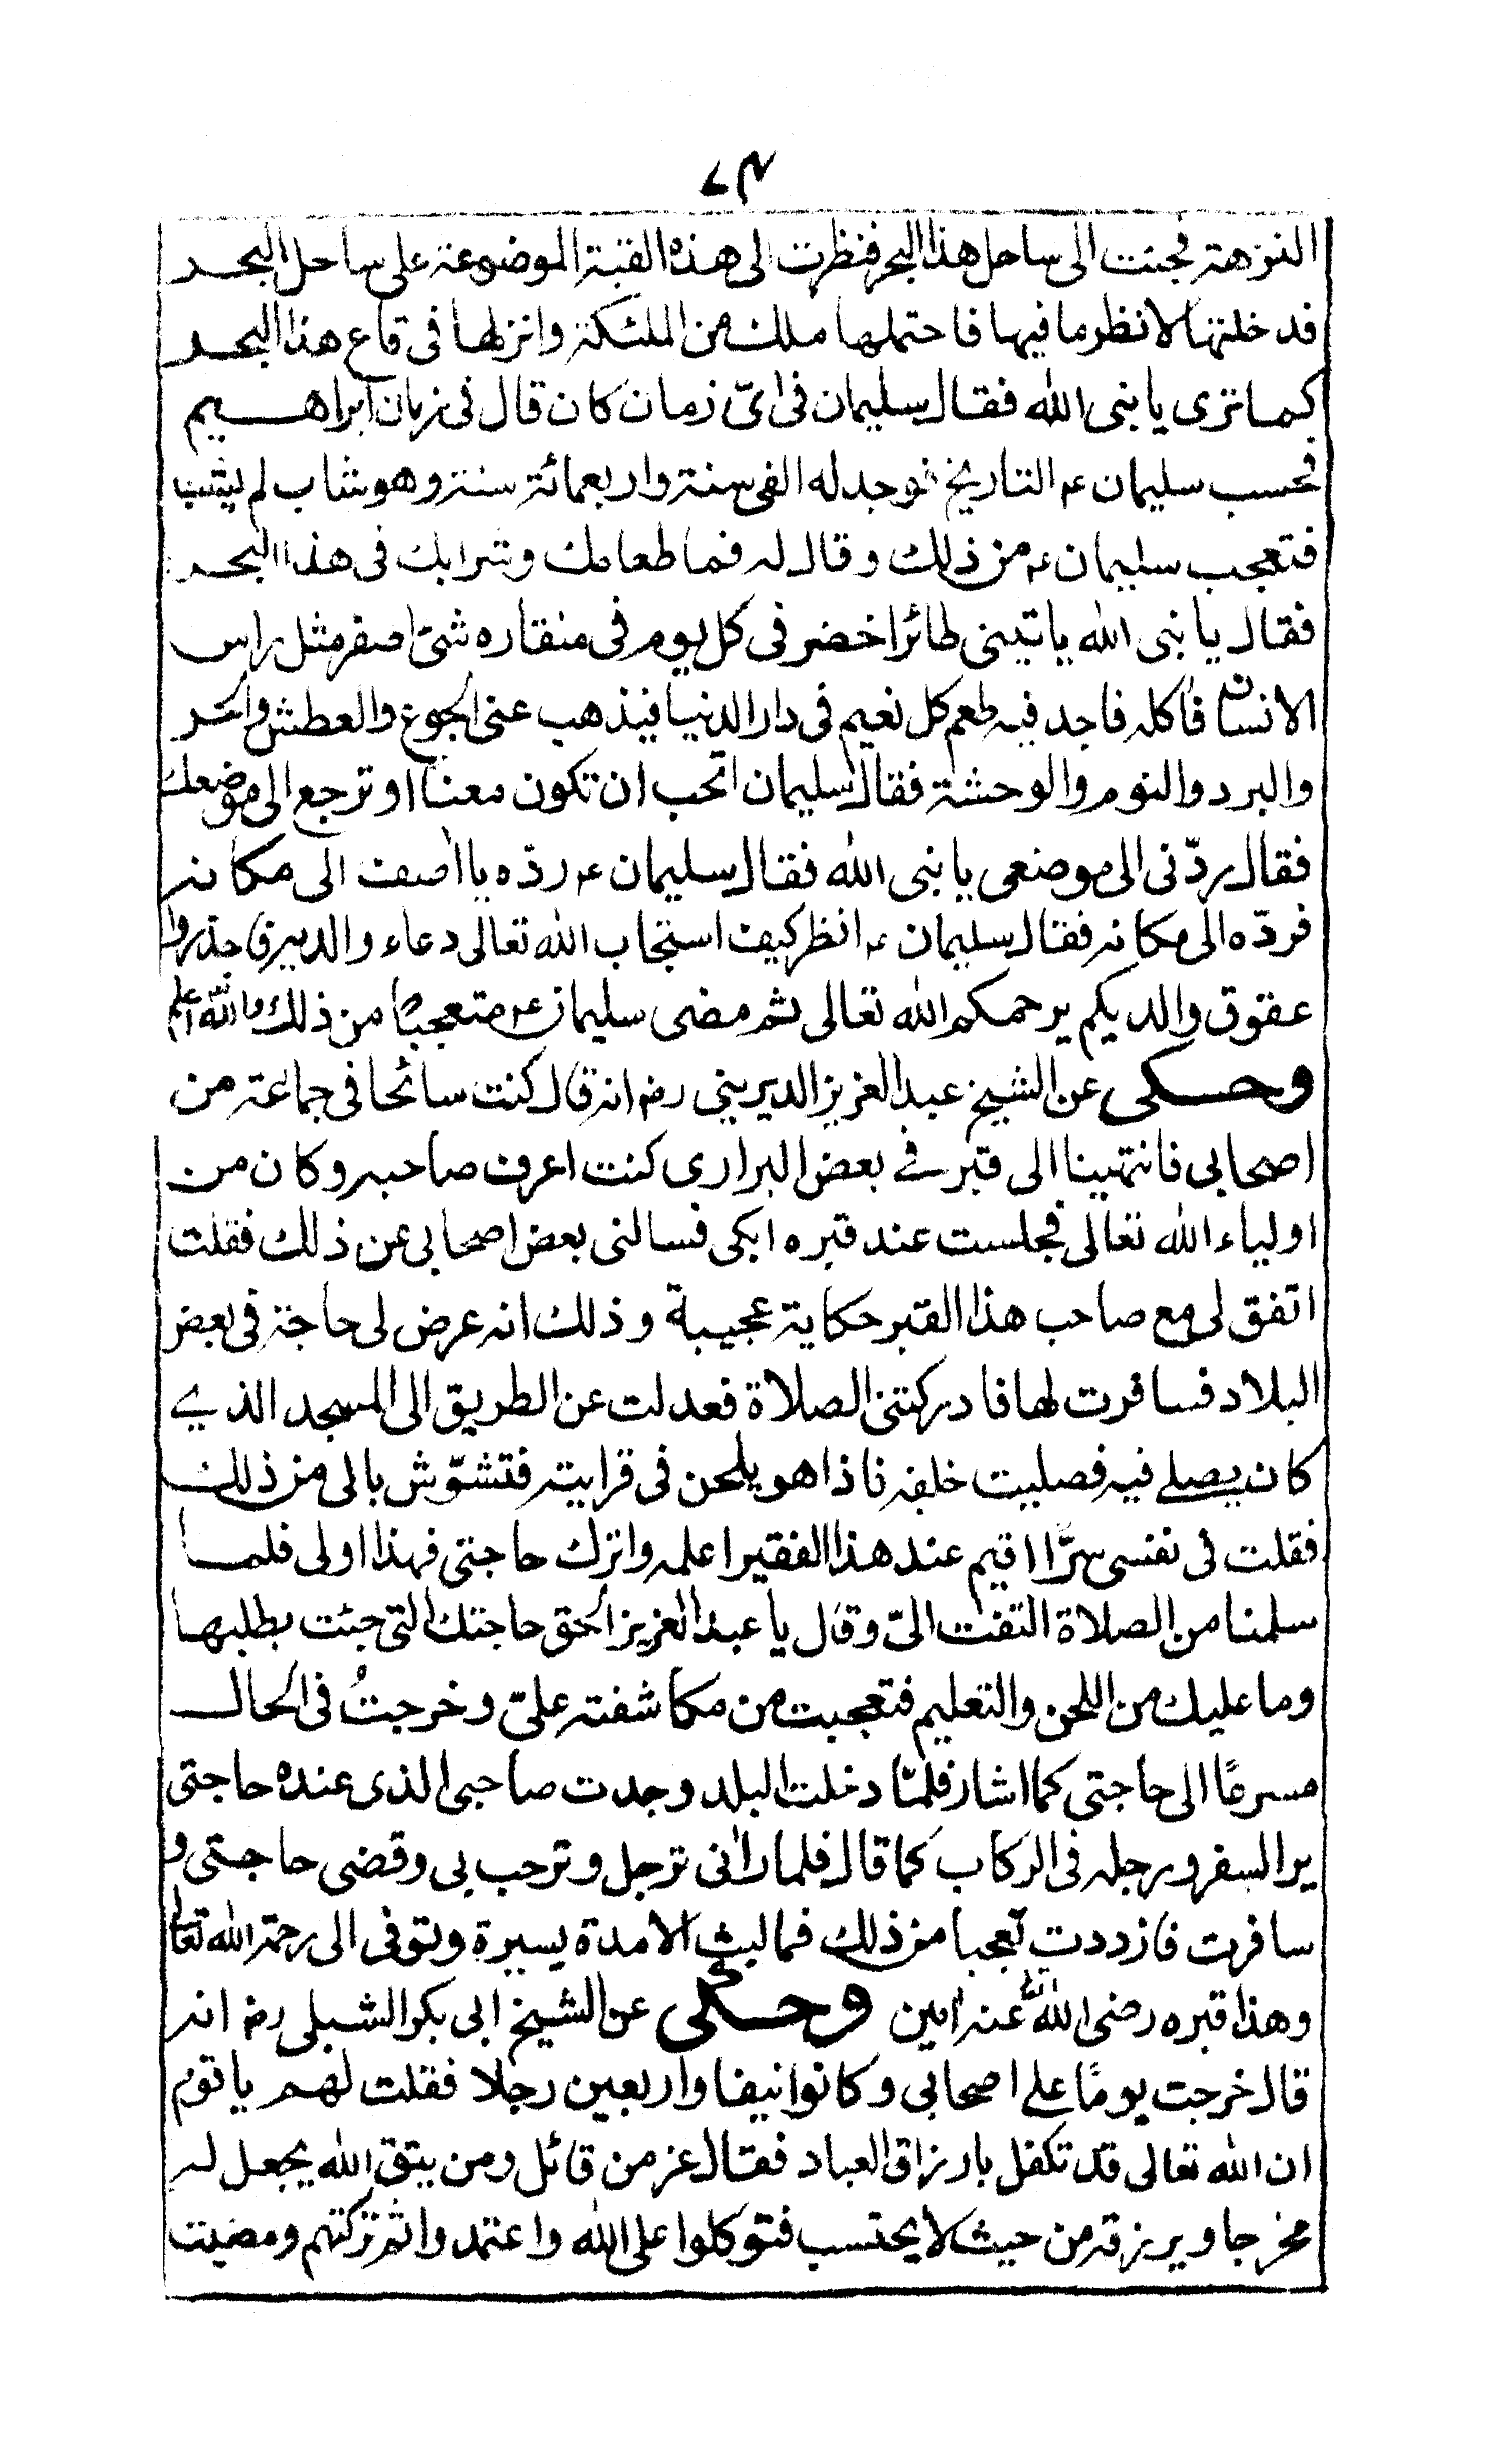 ٧٤
النزهة فجئت الى ساحل هذا البحر فنظرت الى هذه القبة الموضوعة على ساحل البحر
فدخلتها لانظر ما فيها فاحتملها ملك من الملئكة وانزلها فى قاع هذا البحر
كما ترى يا نبى الله فقال سليمان فى اىّ زمان كان قال فى زمان ابراهيم
فحسب سليمان عم التاريخ فوجد له الفى سنة واربعمائة سنة وهو شاب لم يشب
فتعجب سليمان عم من ذلك وقال له فما طعامك وشرابك فى هذا البحر
فقال يا نبى الله ياتينى طائر اخضر فى كل يوم فى منقاره شئ اصفر مثل راس
الانسان فأكله فاجد فيه طعم كل نعيم فى دار الدنيا فيذهب عنى الجوع والعطش والحر
والبرد والنوم والوحشة فقال سليمان اتحب ان تكون معنا او ترجع الى موضعك
فقال ردّنى الى موضعى يا نبى الله فقال سليمان عم ردّه يا اصف الى مكانه
فردّه الى مكانه فقال سليمان عم انظر كيف استجاب الله تعالى دعاء والديه فاحذروا
عقوق والديكم يرحمكم الله تعالى ثم مضى سليمان عم متعجبا من ذلك والله اعلم
وحكى عن الشيخ عبد العزيز الديرينى رضم انه قال كنت سائحا فى جماعة من
اصحابى فانتهينا الى قبر فى بعض البرارى كنت اعرف صاحبه وكان من
اولياء الله تعالى فجلست عند قبره ابكى فسالنى بعض اصحابى عن ذلك فقلت
اتفق لى مع صاحب هذا القبر حكاية عجيبة وذلك انه عرض لى حاجة فى بعض
البلاد فسافرت لها فادركتنى الصلاة فعدلت عن الطريق الى المسجد الذى
كان يصلى فيه فصليت خلفه فاذا هو يلحن فى قرايته فتشوّش بالى من ذلك
فقلت فى نفسى سرّا اقيم عند هذا الفقير اعلمه واترك حاجتى فهذا اولى فلما
سلمنا من الصلاة التفت الىّ وقال يا عبد العزيز الحق حاجتك التى جئت بطلبها
وما عليك من اللحن والتعليم فتعجبت من مكاشفته علىّ وخرجتُ فى الحال
مسرعًا الى حاجتى كما اشار فلمّا دخلت البلد وجدت صاحبى الذى عنده حاجتى
يرا السفر ورجله فى الركاب كما قال فلما رانى ترجل وترحب بى وقضى حاجتى و
سافرت فازددت تعجبا من ذلك فما لبث الامدة يسيرة وتوفى الى رحمة الله تعالى
وهذا قبره رضى الله عنه امين وحكى عن الشيخ ابى بكر الشبلى رضم انه
قال خرجت يومًا على اصحابى وكانوا نيفا واربعين رجلا فقلت لهم يا قوم
ان الله تعالى قد تكفل بارزاق العباد فقال عز من قائل ومن يتق الله يجعل له
مخرجا ويرزقه من حيث لا يحتسب فتوكلوا على الله واعتمدوا ثم تركتهم ومضيت